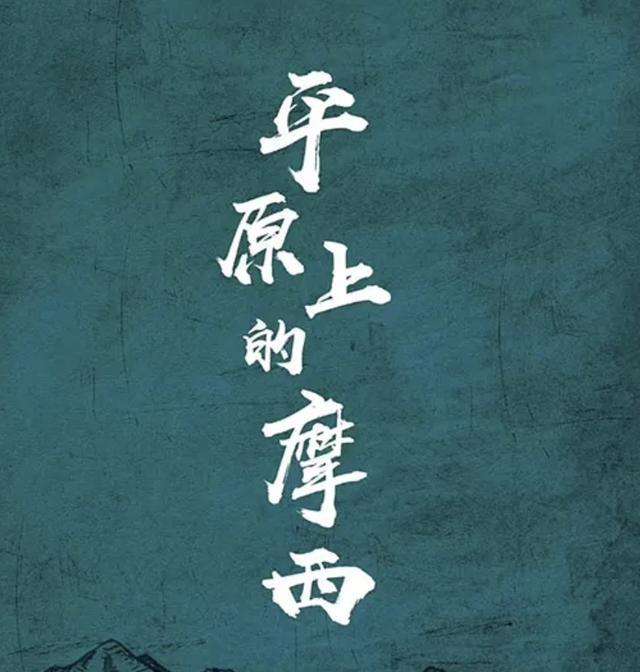 平原上的摩西